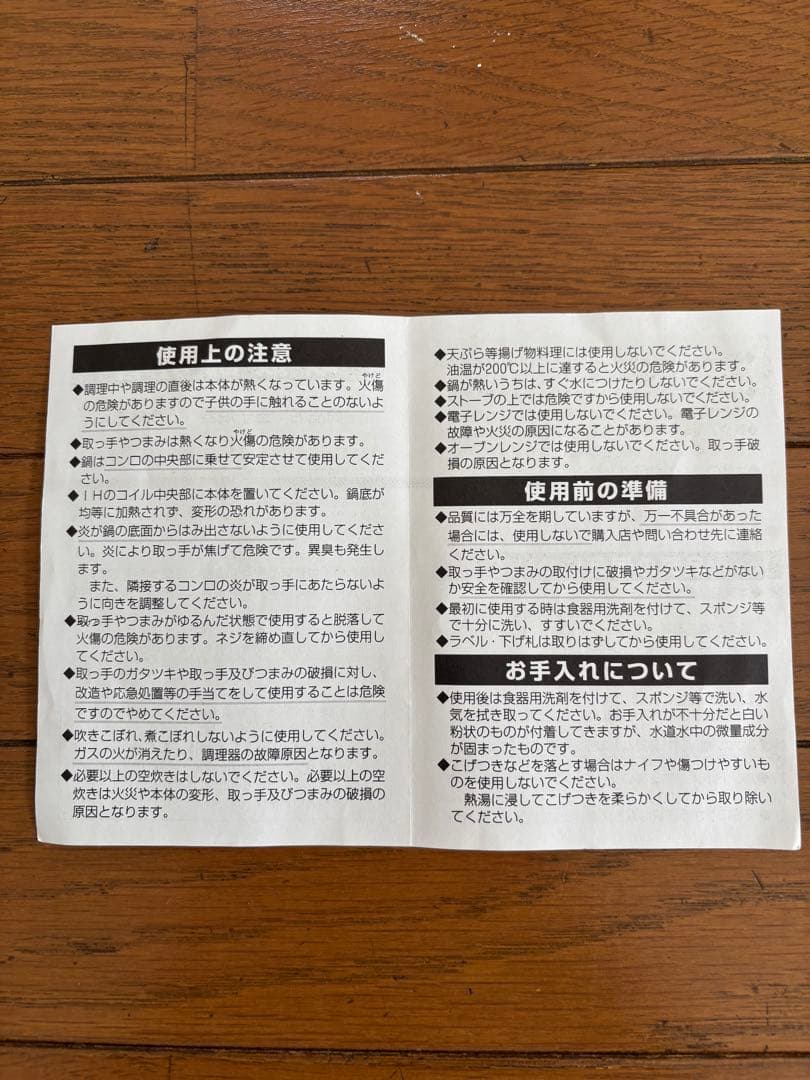 使用上の注意
◆調理中や調理の直後は本体が熱くなっています。火傷
やけど
の危険がありますので子供の手に触れることのないよ
うにしてください。
◆取っ手やつまみは熱くなり火傷の危険があります。
やけど
◆鍋はコンロの中央部に乗せて安定させて使用してくだ
さい。
◆IHのコイル中央部に本体を置いてください。鍋底が
均等に加熱されず、変形の恐れがあります。
◆炎が鍋の底面からはみ出さないように使用してくださ
い。炎により取っ手が焦げて危険です。異臭も発生し
ます。
また、隣接するコンロの炎が取っ手にあたらないよ
うに向きを調整してください。
◆取っ手やつまみがゆるんだ状態で使用すると脱落して
火傷の危険があります。ネジを締め直してから使用し
てください。
◆取っ手のガタツキや取っ手及びつまみの破損に対し、
改造や応急処置等の手当てをして使用することは危険
ですのでやめてください。
◆吹きこぼれ、煮こぼれしないように使用してください。
ガスの火が消えたり、調理器の故障原因となります。
◆必要以上の空炊きはしないでください。必要以上の空
炊きは火災や本体の変形、取っ手及びつまみの破損の
原因となります。
◆天ぷら等揚げ物料理には使用しないでください。
油温が200℃以上に達すると火災の危険があります。
◆鍋が熱いうちは、すぐ水につけたりしないでください。
◆ストーブの上では危険ですから使用しないでください。
◆電子レンジでは使用しないでください。電子レンジの
故障や火災の原因になることがあります。
◆オーブンレンジでは使用しないでください。取っ手破
損の原因となります。
使用前の準備
◆品質には万全を期していますが、万一不具合があった
場合には、使用しないで購入店や問い合わせ先に連絡
ください。
◆取っ手やつまみの取付けに破損やガタツキなどがない
か安全を確認してから使用してください。
◆最初に使用する時は食器用洗剤を付けて、スポンジ等
で十分に洗い、すすいでください。
◆ラベル・下げ札は取りはずしてから使用してください。
お手入れについて
◆使用後は食器用洗剤を付けて、スポンジ等で洗い、水
気を拭き取ってください。お手入れが不十分だと白い
粉状のものが付着してきますが、水道水中の微量成分
が固まったものです。
◆こげつきなどを落とす場合はナイフや傷つけやすいも
のを使用しないでください。
熱湯に浸してこげつきを柔らかくしてから取り除い
てください。